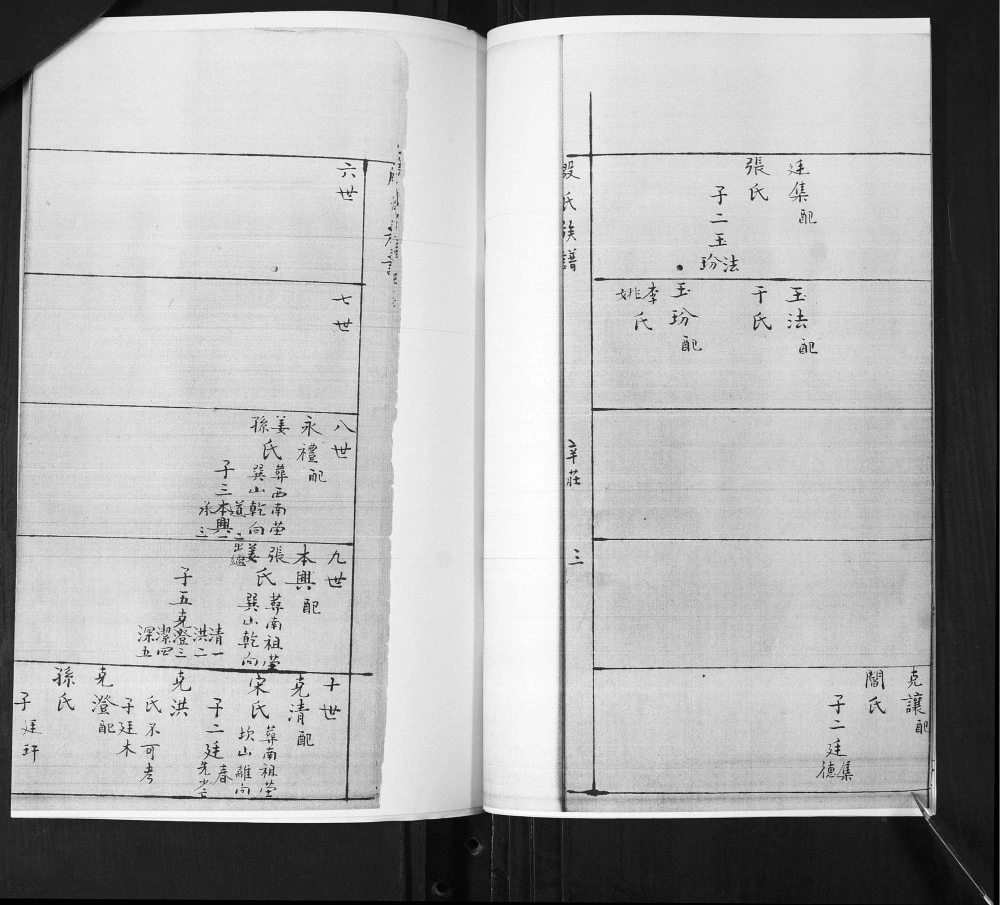 廷集配
張氏
子二玉法
玢
玉法配
于氏
玉玢配
李氏
姚
克讓配
閻氏
子二廷集
德
段氏族譜
辛莊
三
六世
七世
八世
永禮配
姜氏 葬西南塋
孫 巽山乾向
子三本興一
道二出繼
承三
九世
本興配
張氏 葬南祖塋
姜 巽山乾向
子五克清一
洪二
澄三
潔四
深五
十世
克清配
宋氏 葬南祖塋
坎山離向
子二廷春
先少亡
克洪
氏不可考
子廷木
克澄配
孫氏
子廷玕